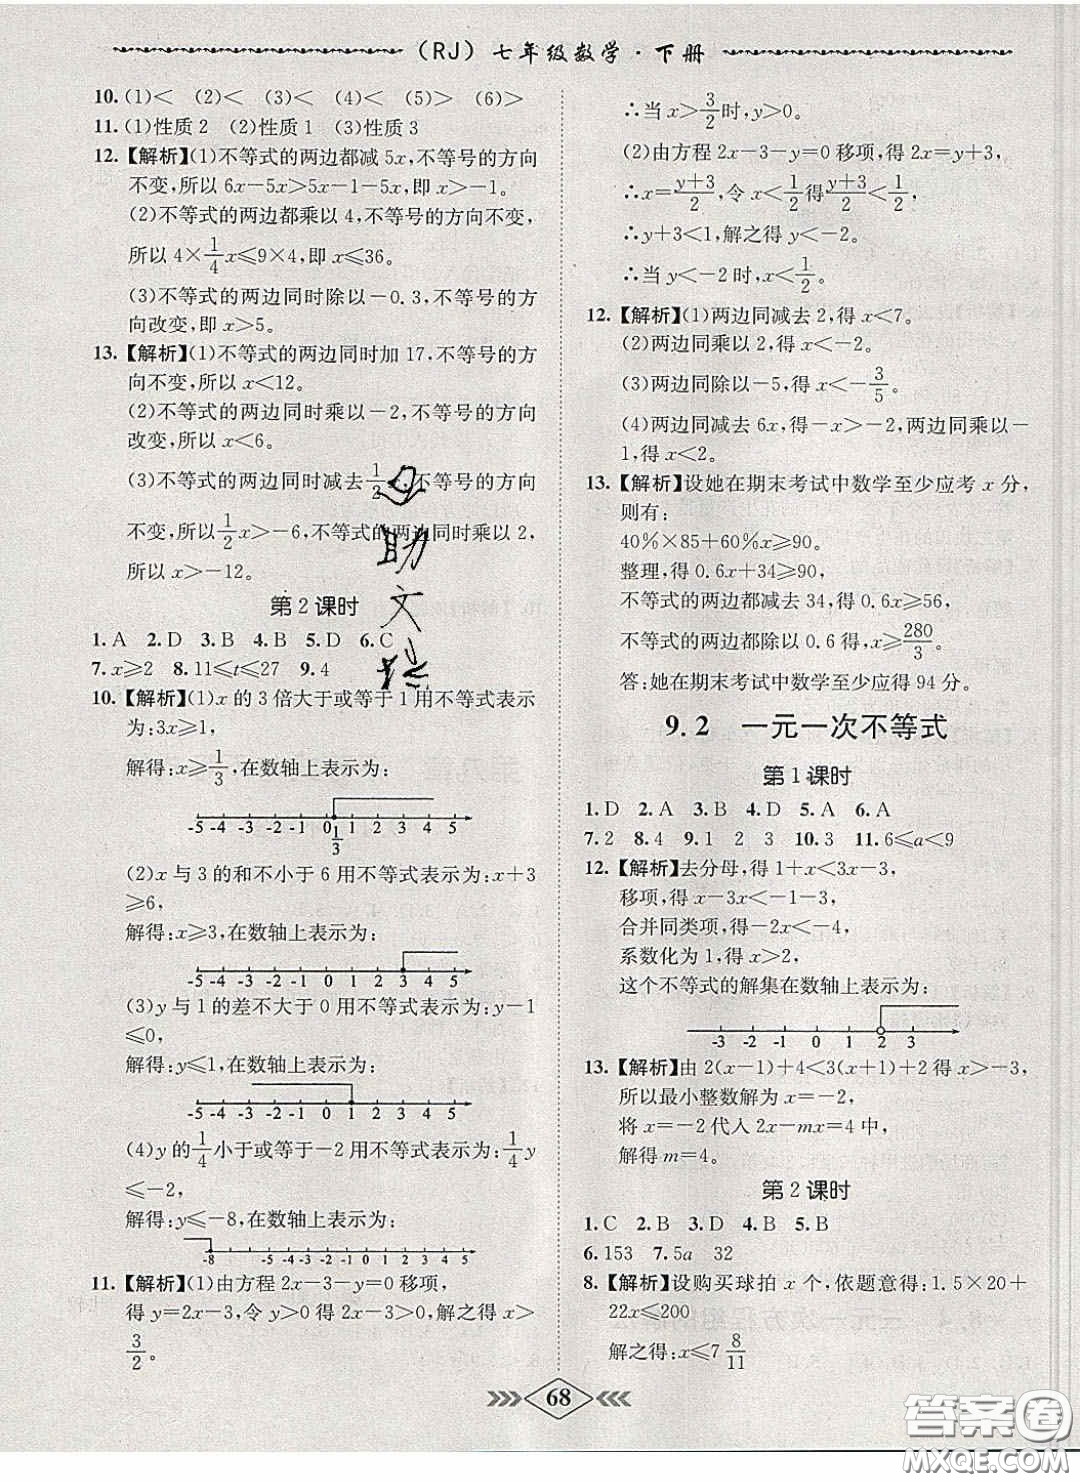 (RJ) 七年级数学·下册
10. (1)< (2)< (3)< (4)< (5)> (6)>
11. (1)性质2 (2)性质1 (3)性质3
12. 【解析】(1)不等式的两边都减5x,不等号的方向
不变,所以6x-5x>5x-1-5x,即x>-1。
(2)不等式的两边都乘以4,不等号的方向不变,
所以4×1/4x≤9×4,即x≤36。
(3)不等式的两边同时除以-0.3,不等号的方
向改变,即x>5。
13. 【解析】(1)不等式的两边同时加17,不等号的方
向不变,所以x<12。
(2)不等式的两边同时乘以-2,不等号的方向
改变,所以x<6。
(3)不等式的两边同时减去1/2x,不等号的方向
不变,所以1/2x>-6,不等式的两边同时乘以2,
所以x>-12。
第2课时
1. A 2. D 3. B 4. B 5. D 6. C
7. x≥2 8. 11≤t≤27 9. 4
10. 【解析】(1)x的3倍大于或等于1用不等式表示
为:3x≥1,
解得:x≥1/3,在数轴上表示为:
-5 -4 -3 -2 -1 0 1/3 1 2 3 4 5
(2)x与3的和不小于6用不等式表示为:x+3
≥6,
解得:x≥3,在数轴上表示为:
-5 -4 -3 -2 -1 0 1 2 3 4 5
(3)y与1的差不大于0用不等式表示为:y-1
≤0,
解得:y≤1,在数轴上表示为:
-5 -4 -3 -2 -1 0 1 2 3 4 5
(4)y的1/4小于或等于-2用不等式表示为:1/4y
≤-2,
解得:y≤-8,在数轴上表示为:
-8 -5 -4 -3 -2 -1 0 1 2 3 4 5
11. 【解析】(1)由方程2x-3-y=0移项,
得y=2x-3,令y>0得2x-3>0,解之得x>
3/2。
∴当x>3/2时,y>0。
(2)由方程2x-3-y=0移项,得2x=y+3,
∴x=y+3/2,令x<1/2得y+3/2<1/2,
∴y+3<1,解之得y<-2。
∴当y<-2时,x<1/2。
12. 【解析】(1)两边同减去2,得x<7。
(2)两边同乘以2,得x<-2。
(3)两边同除以-5,得x<-3/5。
(4)两边同减去6x,得-x>-2,两边同乘以-
1,得x<2。
13. 【解析】设她在期末考试中数学至少应考x分,
则有:
40%×85+60%x≥90。
整理,得0.6x+34≥90,
不等式的两边都减去34,得0.6x≥56,
不等式的两边都除以0.6得,x≥280/3。
答:她在期末考试中数学至少应得94分。
9.2 一元一次不等式
第1课时
1. D 2. A 3. B 4. D 5. A 6. A
7. 2 8. 4 9. 1 2 3 10. 3 11. 6≤a<9
12. 【解析】去分母,得1+x<3x-3,
移项,得x-3x<-1-3,
合并同类项,得-2x<-4,
系数化为1,得x>2,
这个不等式的解集在数轴上表示为:
-3 -2 -1 0 1 2 3
13. 【解析】由2(x-1)+4<3(x+1)+2得x>-3,
所以最小整数解为x=-2,
将x=-2代入2x-mx=4中,
解得m=4。
第2课时
1. C 2. B 3. D 4. B 5. B
6. 153 7. 5a 32
8. 【解析】设购买球拍x个,依题意得:1.5×20+
22x≤200
解之得:x≤7 8/11
68
答案圈
MXQE.COM